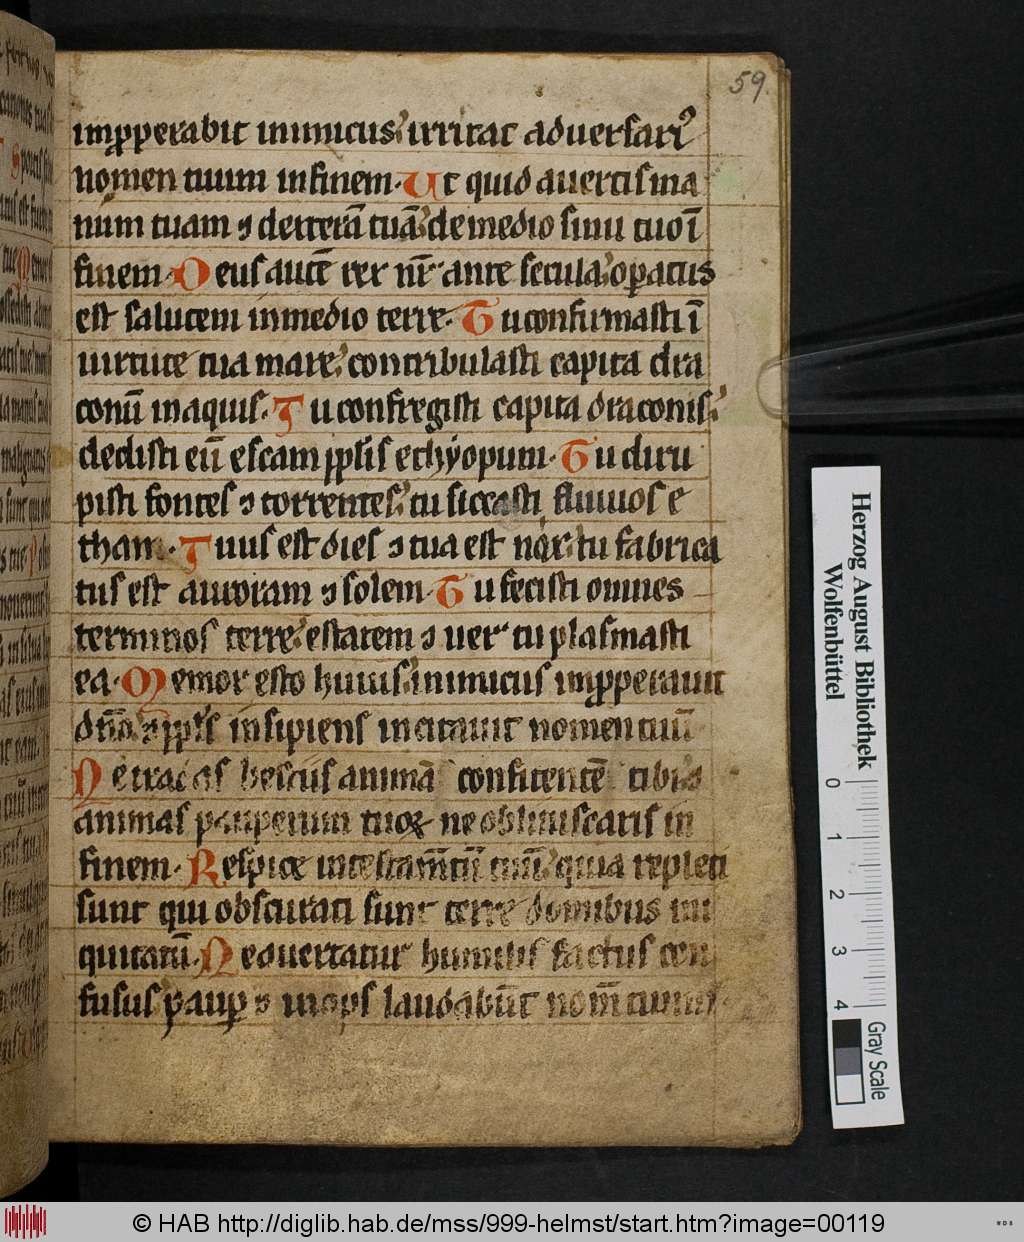 59.
imꝓperabit inimicus. irritat aduersariꝰ
nomen tuum in finem. Ut quid auertis ma
num tuam ⁊ dexterā tuā. de medio sinu tuo ī
finem. Deus autē rex nr̄ ante secula. oꝑatus
est salutem in medio terre. Tu confirmasti ī
uirtute tua mare. contribulasti capita dra
conū in aquis. Tu confregisti capita draconis.
dedisti eū escam ppl̄is ethyopum. Tu diru
pisti fontes ⁊ torrentes. tu siccasti fluuuos e
tham. Tuus est dies ⁊ tua est nox. tu fabrica
tus est auroram ⁊ solem. Tu fecisti omnes
terminos terre. estatem ⁊ uer tu plasmasti
ea. Memor esto huius. inimicus imꝓperauit
dn̄o. ⁊ ppl̄s insipiens incitauit nomen tuū
Ne tradas bestiis animā confitentē tibi. ⁊
animas pauperum tuoꝝ ne obliuiscaris in
finem. Respice in testam̄tū tuū. quia repleti
sunt qui obscurati sunt terre domibus ini
quitatū. Ne auertatur humilis factus con
fusus pauꝑ ⁊ inops laudabūt nom̄ tuum.
Herzog August Bibliothek
Wolfenbüttel
0 1 2 3 4
Gray Scale
© HAB http://diglib.hab.de/mss/999-helmst/start.htm?image=00119